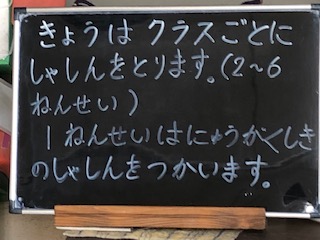 きょうは クラスごとに
しゃしんをとります。(2～6
ねんせい)
1ねんせいはにゅうがくしき
のしゃしんをつかいます。